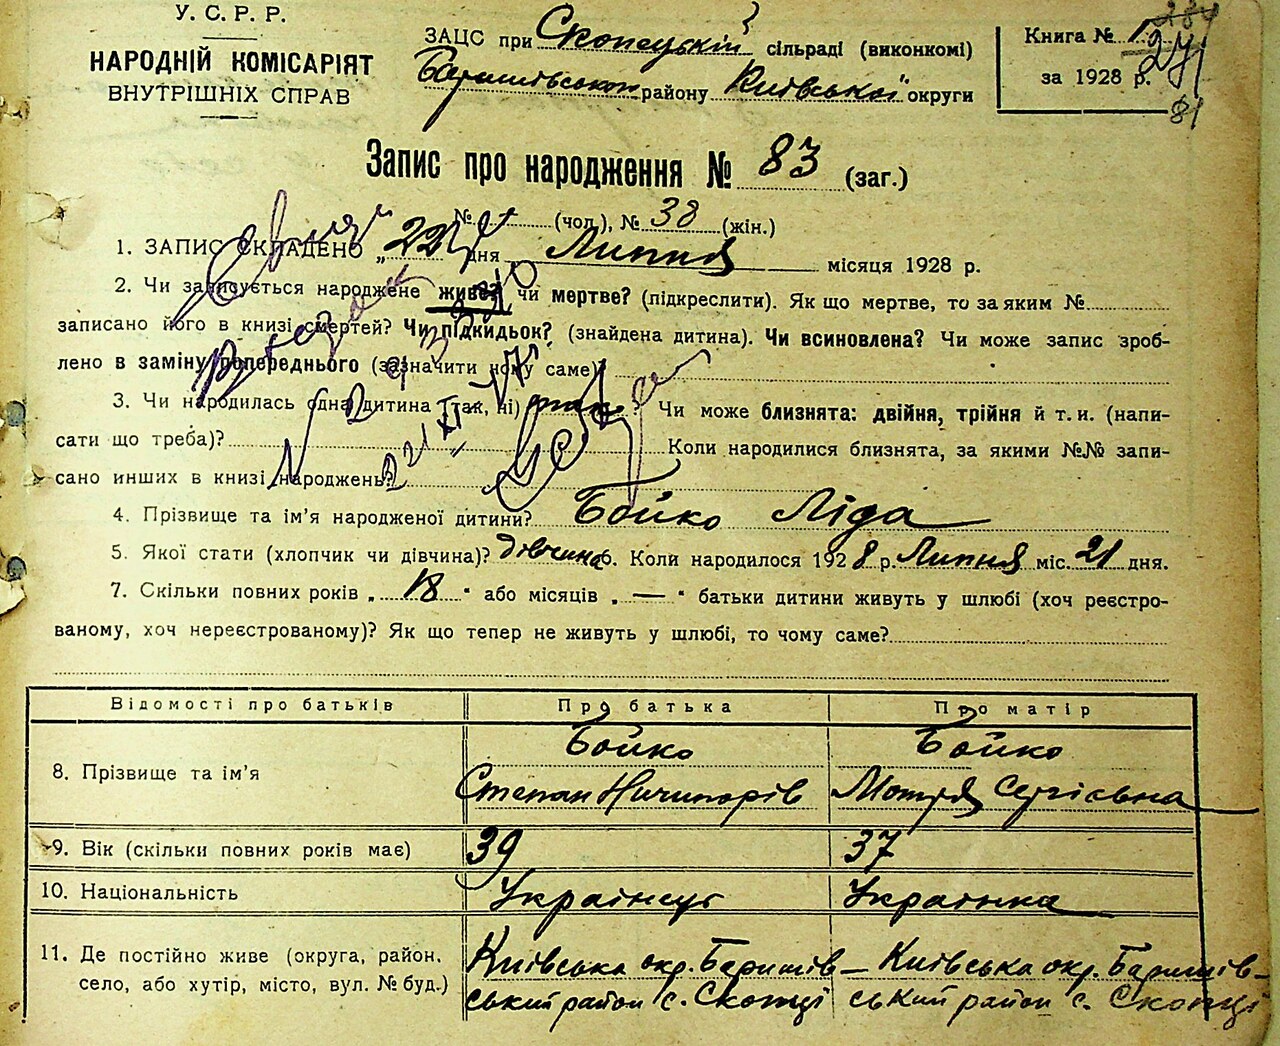 У. С. Р. Р.
НАРОДНІЙ КОМІСАРІЯТ
ВНУТРІШНІХ СПРАВ
ЗАЦС при Скопецькій сільраді (виконкомі)
Баришівського району Київської округи
Книга №
271
за 1928 р.
81
Запис про народження № 83 (заг.)
№ (чол.), № 38 (жін.)
1. ЗАПИС СКЛАДЕНО „22" дня Липня місяця 1928 р.
2. Чи записується народжене живе? чи мертве? (підкреслити). Як що мертве, то за яким №
записано його в книзі смертей? Чи підкидьок? (знайдена дитина). Чи всиновлена? Чи може запис зроб-
лено в заміну попереднього (зазначити чому саме)
3. Чи народилась одна дитина (так, ні) так? Чи може близнята: двійня, трійня й т. и. (напи-
сати що треба)? Коли народилися близнята, за якими №№ запи-
сано инших в книзі народжень?
4. Прізвище та ім'я народженої дитини? Бойко Ліда
5. Якої стати (хлопчик чи дівчина)? дівчина 6. Коли народилося 1928 р. Липня міс. 21 дня.
7. Скільки повних років „ 18 " або місяців „ — " батьки дитини живуть у шлюбі (хоч реєстро-
ваному, хоч нереєстрованому)? Як що тепер не живуть у шлюбі, то чому саме?
Відомості про батьків Про батька Про матір
8. Прізвище та ім'я Бойко Степан Ничипорів Бойко Мотря Сергієвна
9. Вік (скільки повних років має) 39 37
10. Національність Українець Українка
11. Де постійно живе (округа, район, Київська окр. Баришів- Київська окр. Баришів-
село, або хутір, місто, вул. № буд.) ський район с. Скопці ський район с. Скопці